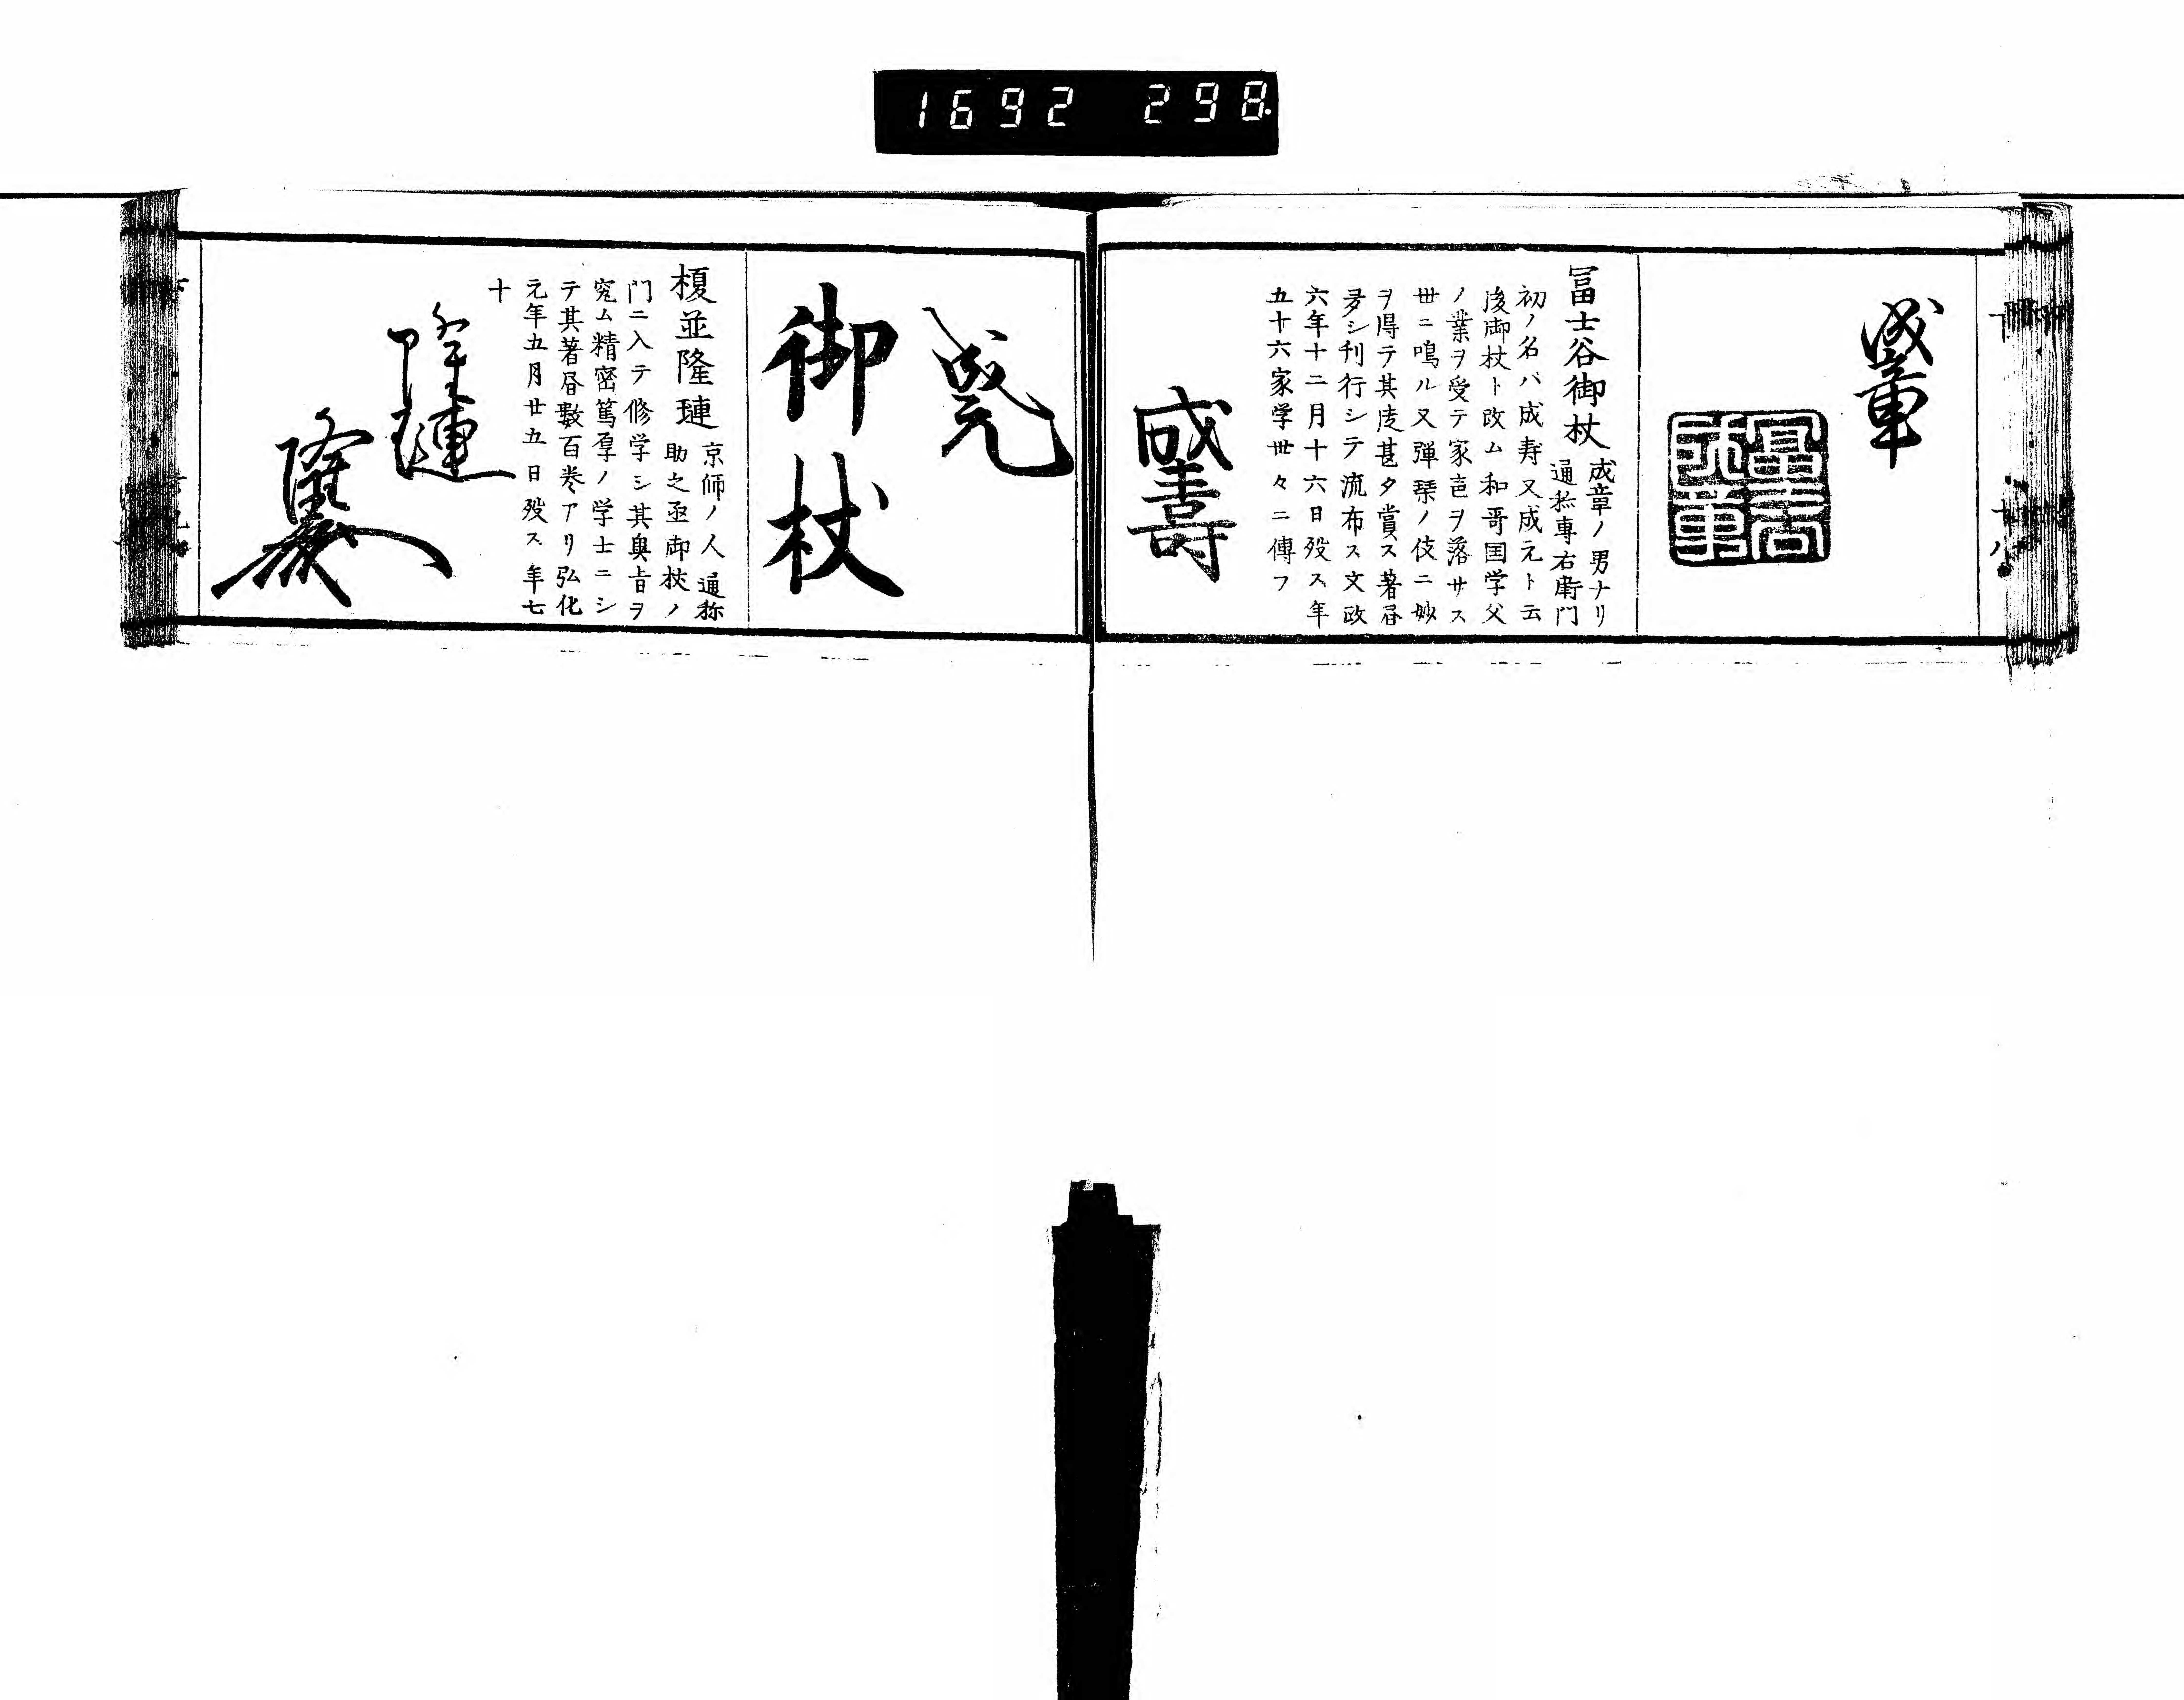 1692 298
成章
冨士谷御杖
成章ノ男ナリ
通称専右衛門
初ノ名ハ成寿又成元ト云
後御杖ト改ム和哥国学父
ノ業ヲ受テ家声ヲ落サス
世ニ鳴ル又弾琴ノ伎ニ妙
ヲ得テ其虔甚タ賞ス著昼
多シ刋行シテ流布ス文政
六年十二月十六日歿ス年
五十六家学世々ニ傳フ
成壽
成元
御杖
榎並隆璉
京師ノ人通称
助之亟御杖ノ
門ニ入テ修学シ其奥旨ヲ
究ム精密篤厚ノ学士ニシ
テ其著昼數百巻アリ弘化
元年五月廿五日歿ス年七
十
隆璉